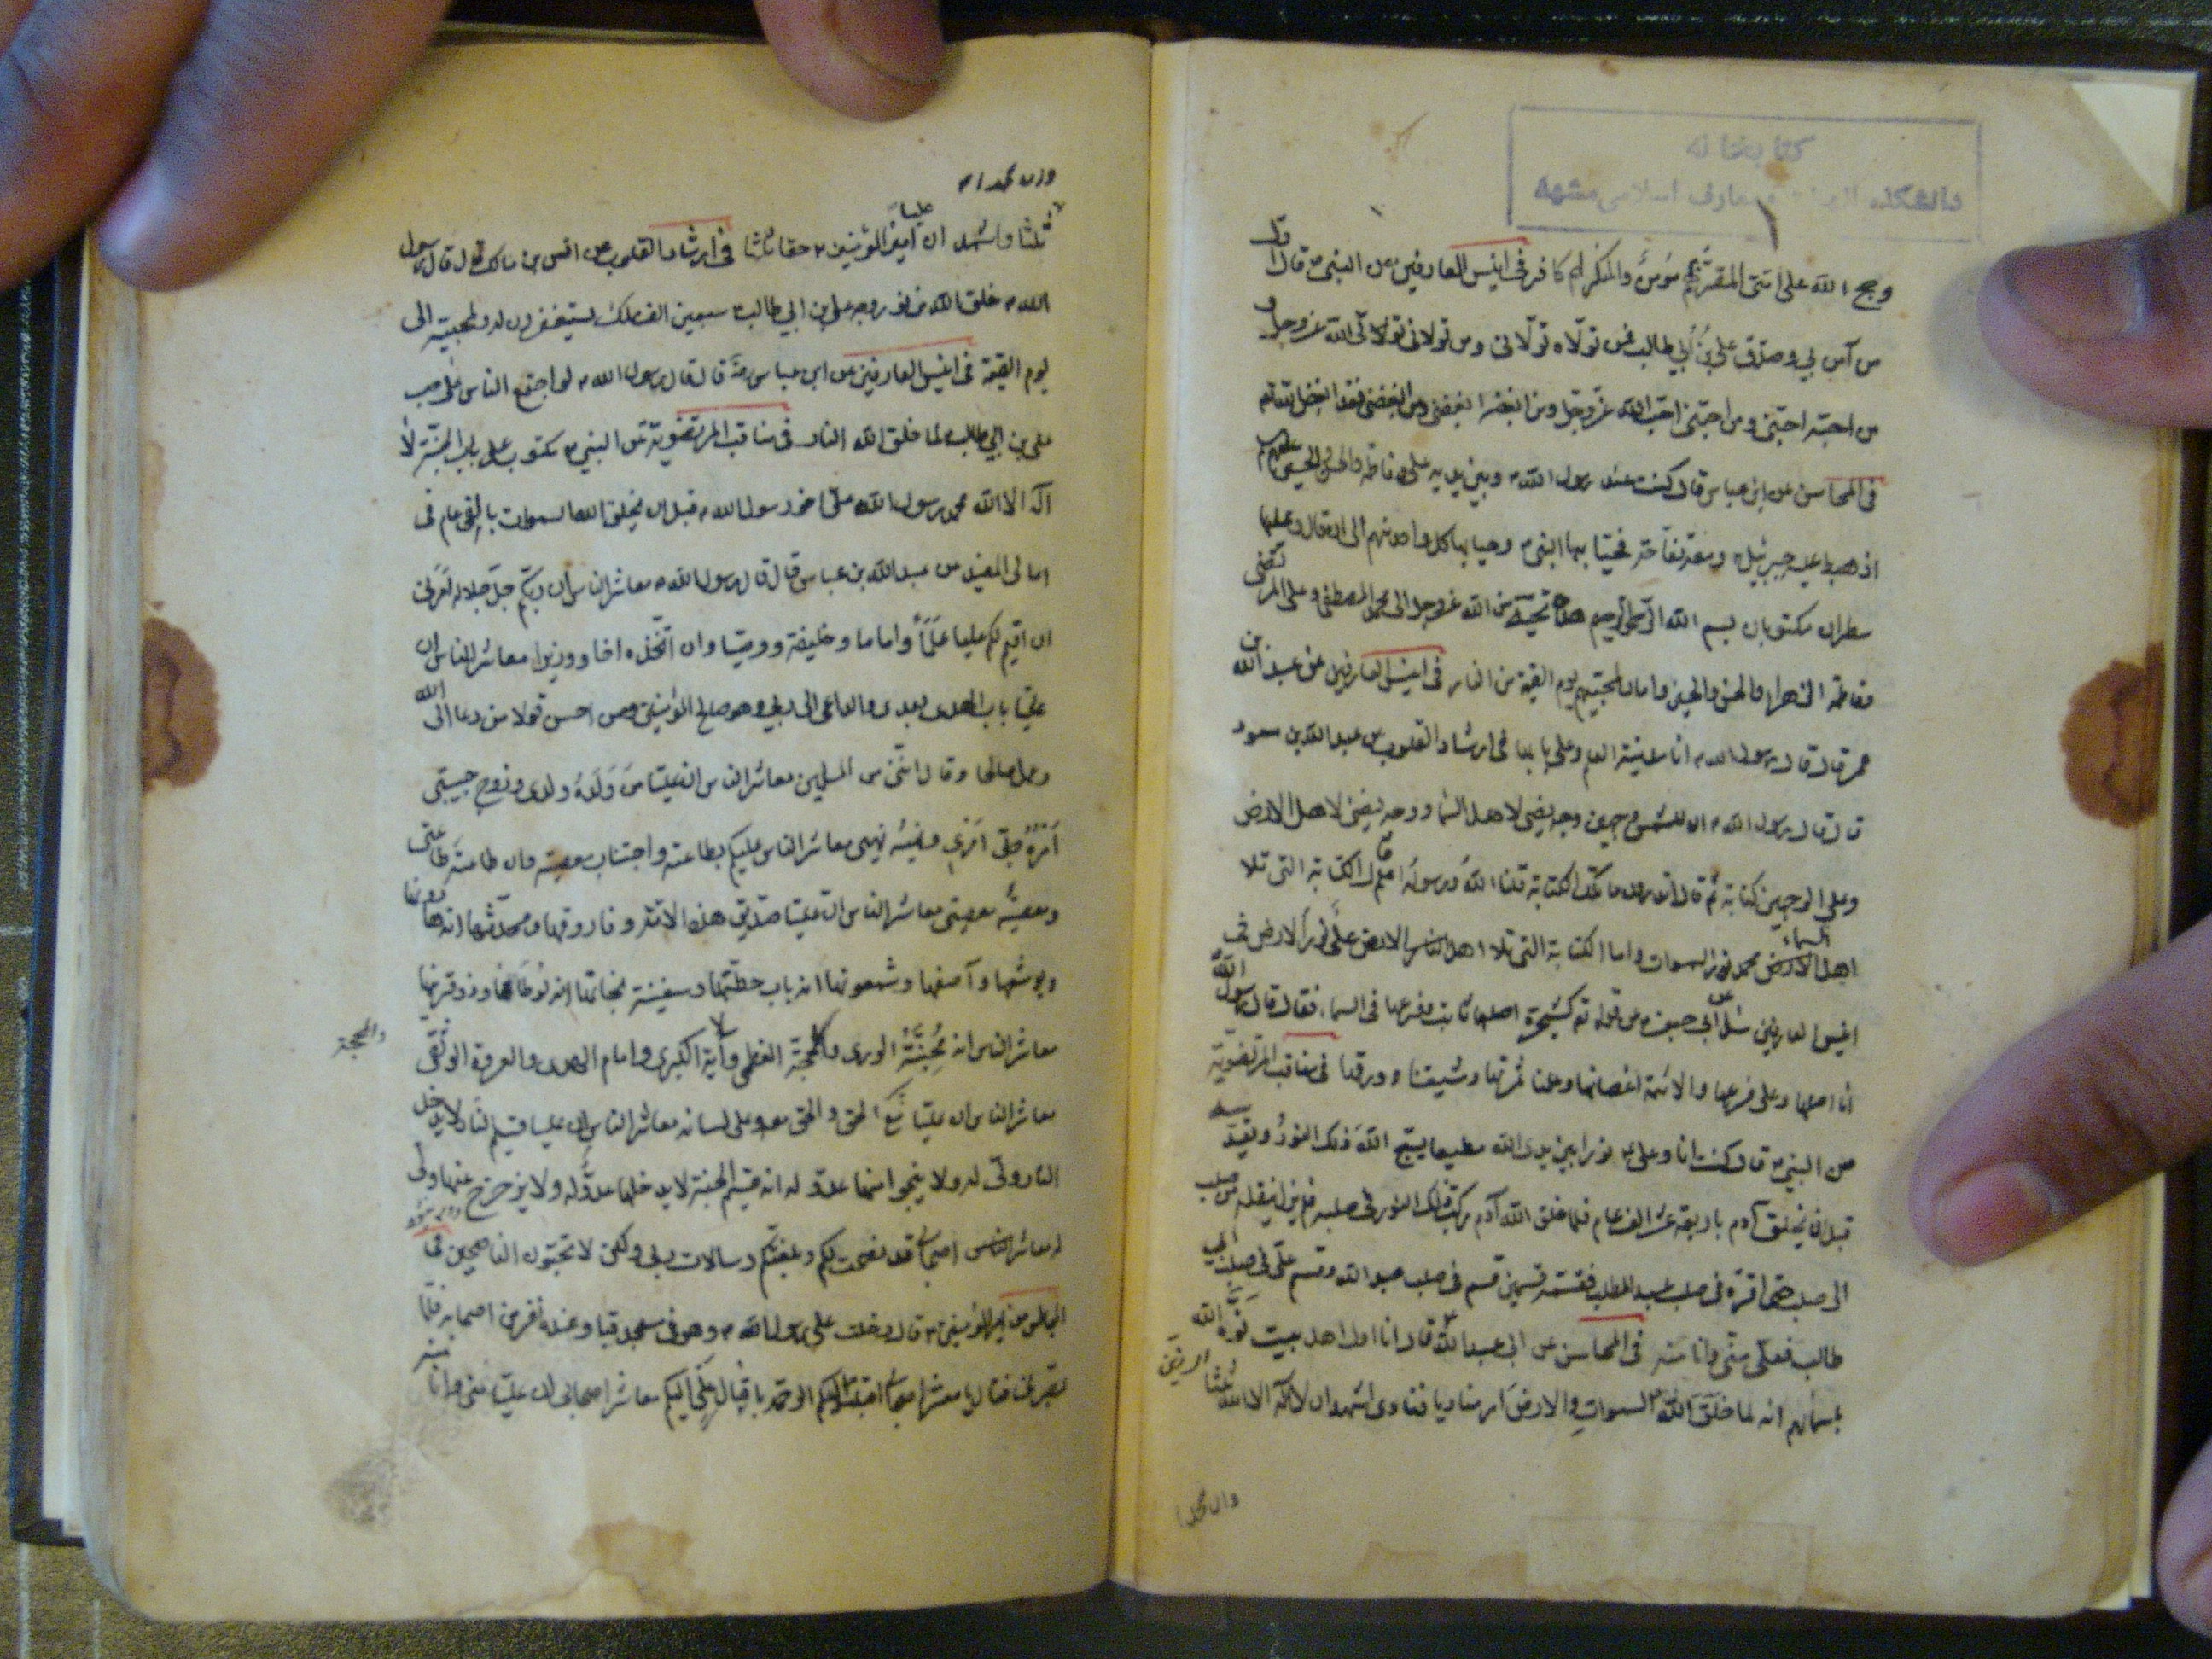 كتابخانه
دانشكده الهيات و معارف اسلامى مشهد
وحجج الله على امتى المقر بهم مؤمن والمنكر لهم كافر فى انيس العارفين عن النبى ص قال اول
من آمن بي وصدق علي بن أبي طالب فمن تولاه تولاني ومن تولانى تولى الله عز وجل و
من احبه احبنى ومن احبنى احب الله عز وجل ومن ابغضه ابغضنى ومن ابغضنى فقد ابغض الله تع
فى المحاسن عن ابن عباس قال كنت عند رسول الله ص وبين يديه على وفاطمة والحسن والحسين عليهم
اذ هبط عليه جبرئيل ومعه تفاحة فحيا بها النبى ص وحيا بها كل واحد منهم الى ان قال وعليها
سطران مكتوبان بسم الله الرحمن الرحيم هذه تحية من الله عز وجل الى محمد المصطفى وعلى المرتضى
وفاطمة الزهراء والحسن والحسين وامان لمحبيهم يوم القيمة من النار فى انيس العارفين عن عبد الله بن
عمر قال قال رسول الله ص انا مدينة العلم وعلي بابها فى ارشاد القلوب عن عبد الله بن مسعود
قال قال رسول الله ص ان للشمس وجهين وجه يضئ لاهل السماء ووجه يضئ لاهل الارض
وعلى الوجهين كتابة ثم قال اتدرون ما تلك الكتابة قلنا الله ورسوله اعلم قال الكتابة التى تلا
اهل السماء محمد نور السموات واما الكتابة التى تلا اهل الارض على نور الارض فى
انيس العارفين سئل عن أبي جعفر ع من قوله تع كشجرة اصلها ثابت وفرعها فى السماء فقال قال رسول الله
أنا اصلها وعلى فرعها والائمة اغصانها وعلمنا ثمرتها وشيعتنا ورقها فى مناقب المرتضوية
عن النبي ص قال كنت انا وعلى نورا بين يدى الله مطيعا يسبح الله ذلك النور ويقدسه
قبل ان يخلق آدم باربعة عشر الف عام فلما خلق الله آدم ركب ذلك النور فى صلبه فلم يزل ينقله من صلب
الى صلب حتى اقره فى صلب عبد المطلب فقسمه قسمين قسم فى صلب عبد الله وقسم فى صلب ابى
طالب فعلى منى وانا منه فى المحاسن عن ابى عبد الله قال انا اول اهل بيت نوه الله
باسمائهم انه لما خلق الله السموات والارض امر مناديا فنادى اشهد ان لا اله الا الله ثلثا
وان محمدا
وان محمدا
ثلثا واشهد ان عليا أمير المؤمنين حقا ثلثا فى ارشاد القلوب عن انس بن مالك قال قال رسول
الله ص خلق الله من نور وجه علي بن ابي طالب سبعين الف ملك يستغفرون له ولمحبيه الى
يوم القيمة فى انيس العارفين عن ابن عباس رض قال قال رسول الله ص لو اجتمع الناس على حب
على بن ابي طالب لما خلق الله النار فى مناقب المرتضوية عن النبي ص مكتوب على باب الجنة لا
اله الا الله محمد رسول الله على اخو رسول الله ص قبل ان يخلق الله السموات بالفى عام فى
امالى المفيد عن عبد الله بن عباس قال قال رسول الله ص معاشر الناس ان ربكم جل جلاله امرنى
ان اقيم لكم عليا علما واماما وخليفة ووصيا وان اتخذه اخا ووزيرا معاشر الناس ان
عليا باب الهدى بعدى والداعى الى ربى وهو صالح المؤمنين ومن احسن قولا ممن دعا الى الله
وعمل صالحا وقال اننى من المسلمين معاشر الناس ان عليا منى ولده ولدى وزوج حبيبتى
امره امرى ونهيه نهيى معاشر الناس عليكم بطاعته واجتناب معصيته فان طاعته طاعتى
ومعصيته معصيتى معاشر الناس ان عليا صديق هذه الامة وفاروقها ومحدثها انه هارونها
ويوشعها وآصفها وشمعونها انه باب حطتها وسفينة نجاتها انه طالوتها وذو قرنيها
معاشر الناس انه محنة الورى والحجة العظمى والآية الكبرى وامام الهدى والعروة الوثقى
والحجة
معاشر الناس ان عليا مع الحق والحق معه وعلى لسانه معاشر الناس ان عليا قسيم النار لا يدخل
النار ولى له ولا ينجو منها عدو له انه قسيم الجنة لا يدخلها عدو له ولا يزحزح عنها ولى
له معاشر اصحابى قد نصحت لكم وبلغتكم رسالات ربى ولكن لا تحبون الناصحين فى
المجالس عن أمير المؤمنين ع قال دخلت على رسول الله ص وهو فى مسجد قبا وعنده نفر من اصحابه فلما
بصر بى فقال يا معشر اصحابى اقبلت اليكم الرحمة باقبال على اليكم معاشر اصحابى ان عليا منى وانا منه